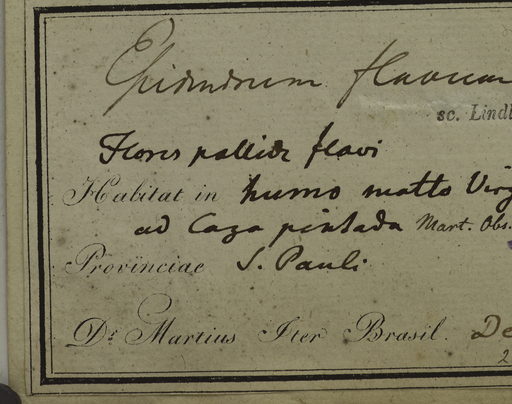 Epidendrum flavum
sc. Lindl
Flores pallide flavi
Habitat in humo matto Virg
ad Caza pintada Mart. Obs.
Provinciae S. Pauli
Dr Martius Iter Brasil. De
2